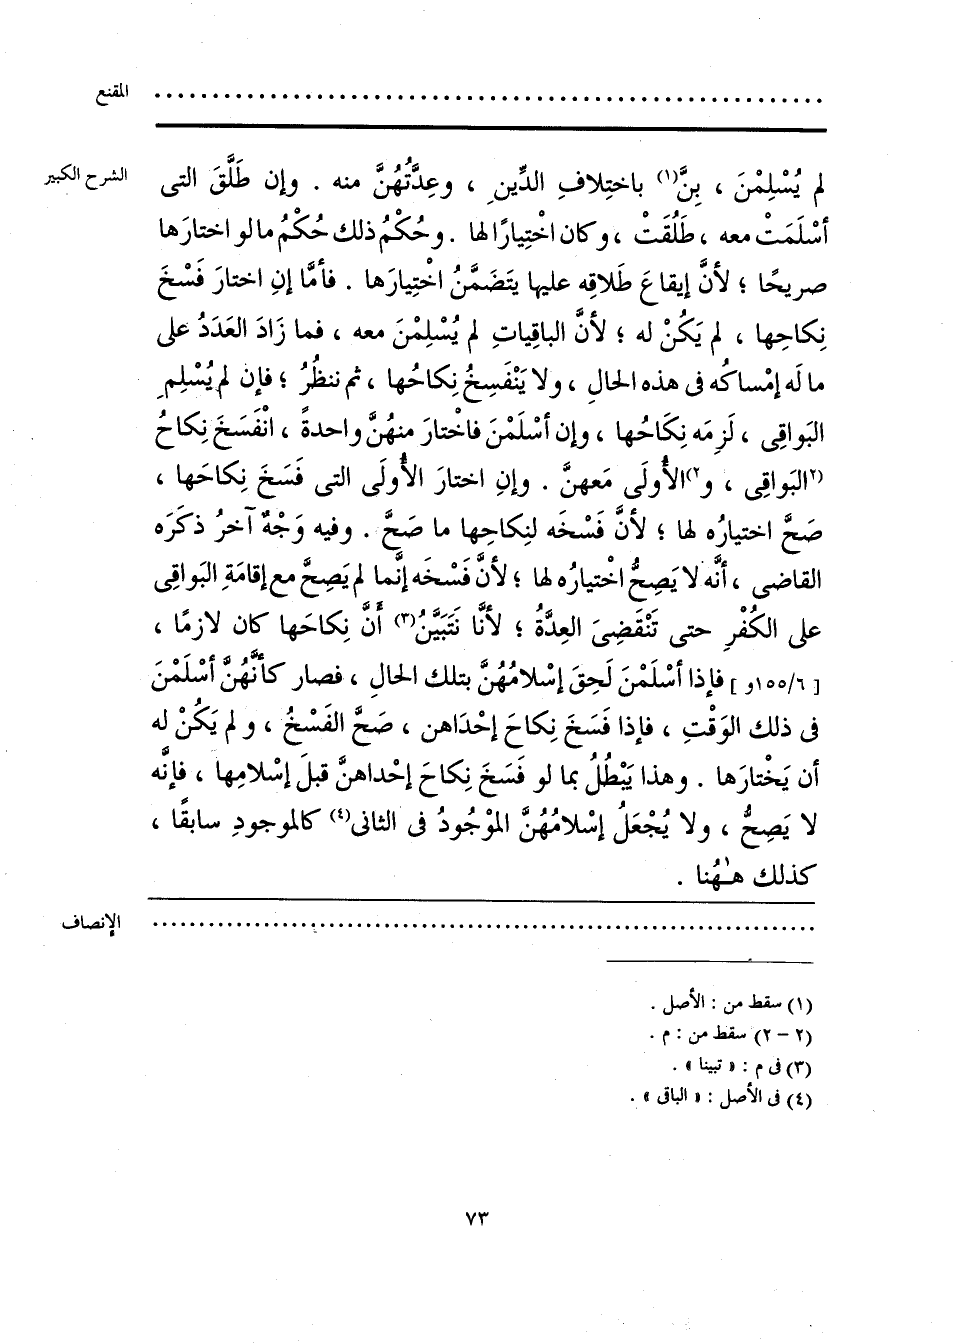 المقنع ................................................................
الشرح الكبير
لم يُسْلِمْنَ ، بِنَّ(١) باختِلافِ الدِّينِ ، وعِدَّتُهُنَّ منه . وإن طَلَّقَ التى
أسْلَمَتْ معه ، طَلُقَتْ ، وكان اخْتِيارًا لها . وحُكْمُ ذلك حُكْمُ ما لو اختارَها
صريحًا ؛ لأنَّ إيقاعَ طَلاقِه عليها يتَضَمَّنُ اخْتِيارَها . فأمَّا إنِ اختارَ فَسْخَ
نِكاحِها ، لم يَكُنْ له ؛ لأنَّ الباقِياتِ لم يُسْلِمْنَ معه ، فما زَادَ العَدَدُ على
ما لَه إمْساكُه فى هذه الحالِ ، ولا يَنْفَسِخُ نِكاحُها ، ثم ننظُرُ ؛ فإن لم يُسْلِمِ
البَواقِى ، لَزِمَه نِكَاحُها ، وإن أسْلَمْنَ فاخْتارَ منهُنَّ واحدةً ، انْفَسَخَ نِكاحُ
(٢البَواقِى ، و٢)الأُولَى مَعهنَّ . وإنِ اختارَ الأُولَى التى فَسَخَ نِكاحَها ،
صَحَّ اختيارُه لها ؛ لأنَّ فَسْخَه لنِكاحِها ما صَحَّ . وفيه وَجْهٌ آخرُ ذكَرَه
القاضى ، أنَّه لا يَصِحُّ اخْتيارُه لها ؛ لأنَّ فَسْخَه إنَّما لم يَصِحَّ مع إقامَةِ البَواقِى
على الكُفْرِ حتى تَنْقَضِىَ العِدَّةُ ؛ لأنَّا نَتَبَيَّنُ(٣) أنَّ نِكاحَها كان لازمًا ،
[ ١٥٥/٦و ] فإذا أسْلَمْنَ لَحِقَ إسْلامُهُنَّ بتلك الحالِ ، فصار كأنَّهُنَّ أسْلَمْنَ
فى ذلك الوَقْتِ ، فإذا فَسَخَ نِكاحَ إحْدَاهن ، صَحَّ الفَسْخُ ، ولم يَكُنْ له
أن يَخْتارَها . وهذا يَبْطُلُ بما لو فَسَخَ نِكاحَ إحْداهنَّ قبلَ إسْلامِها ، فإنَّه
لا يَصِحُّ ، ولا يُجْعَلُ إسْلامُهُنَّ المَوْجُودُ فى الثانى(٤) كالموجودِ سابقًا ،
كذلك هٰهُنا .
الإنصاف ................................................................
(١) سقط من : الأصل .
(٢ – ٢) سقط من : م .
(٣) فى م : « تبينا » .
(٤) فى الأصل : « الباقى » .
٧٣